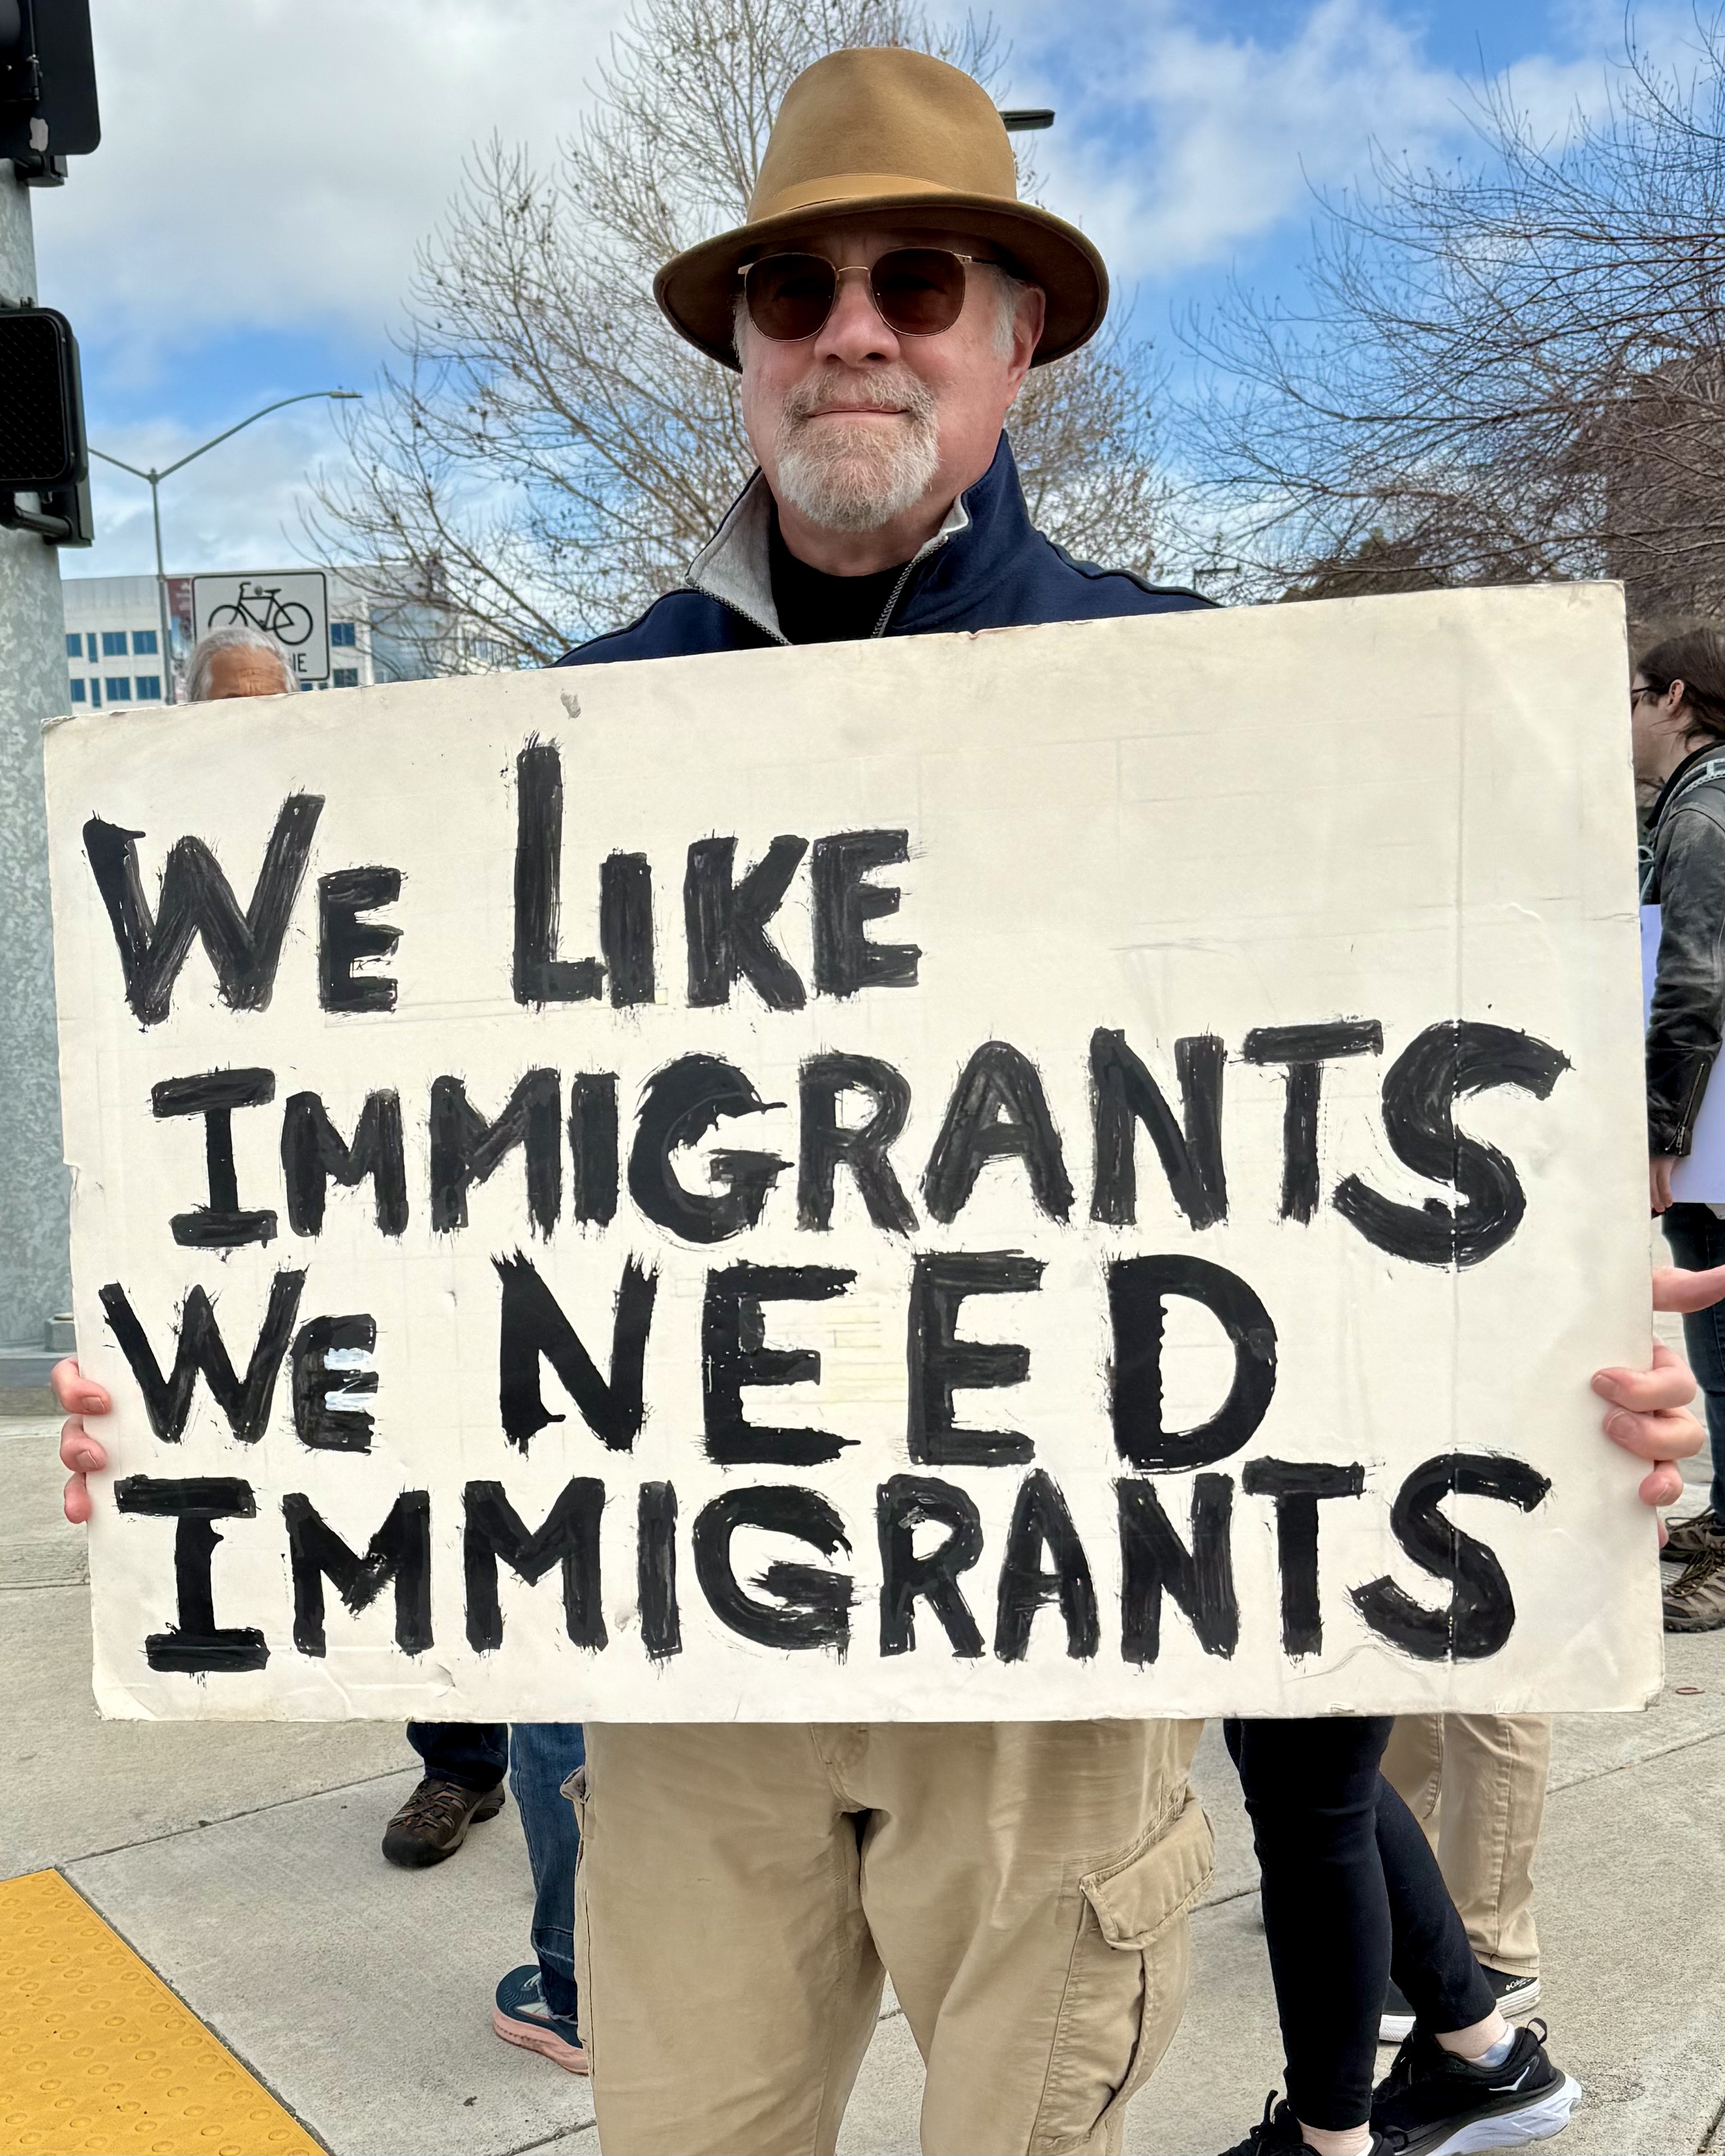 WE LIKE
IMMIGRANTS
WE NEED
IMMIGRANTS